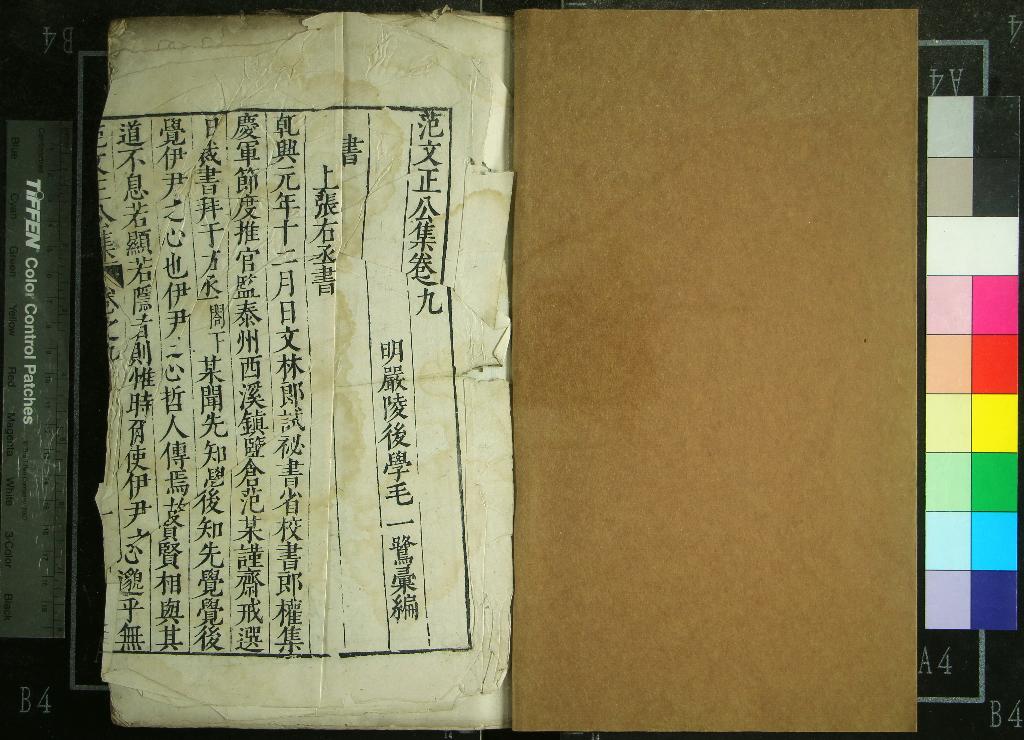 范文正公集卷之九
明嚴陵後學毛一鷺彙編
書
上張右丞書
乹興元年十二月日文林郎試祕書省校書郎權集
慶軍節度推官監泰州西溪鎮鹽倉范某謹齋戒選
日裁書拜于右丞閣下某聞先知覺後知先覺覺後
覺伊尹之心也伊尹之心哲人傳焉故賢賢相與其
道不息若顯若隱者則惟時爾使伊尹之心邈乎無
范文正公集 卷之九
TIFFEN Color Control Patches
Blue
Cyan
Green
Yellow
Red
Magenta
White
3-Color
Black
B4
A4
A4
B4
B4